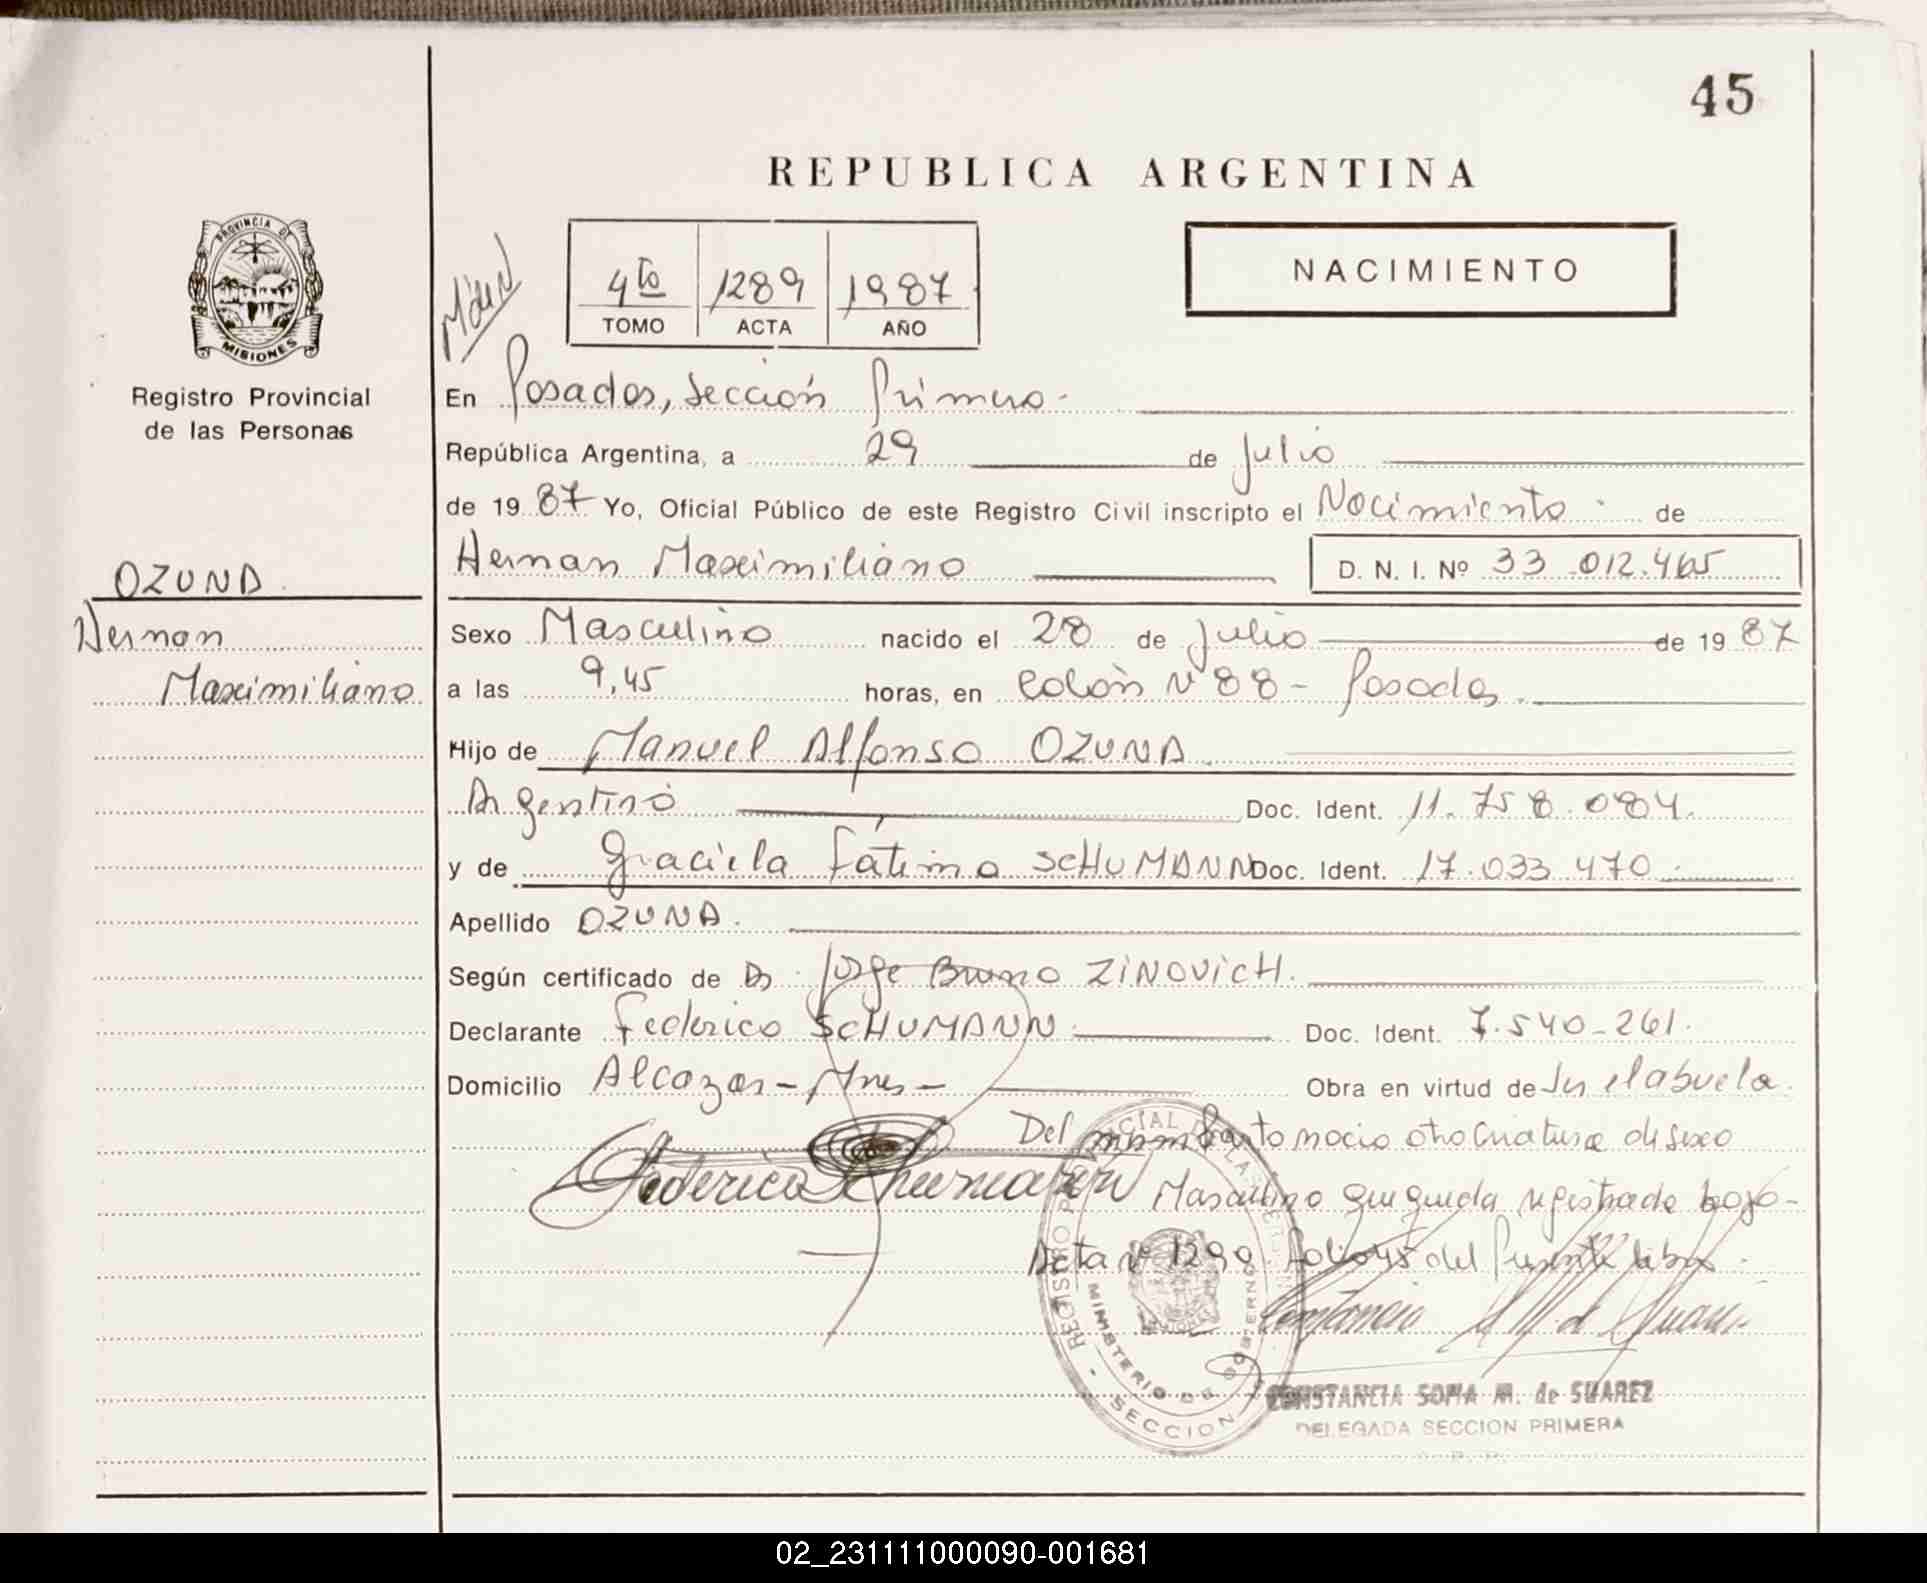 45
REPUBLICA ARGENTINA
PROVINCIA DE
MISIONES
Registro Provincial
de las Personas
4to 1289 1987
TOMO ACTA AÑO
NACIMIENTO
En Posadas, Sección Primera.
República Argentina, a 29 de Julio
de 19 87 Yo, Oficial Público de este Registro Civil inscripto el Nacimiento de
Hernan Maximiliano D. N. I. Nº 33.012.465
OZUNA
Hernan
Maximiliano
Sexo Masculino nacido el 28 de Julio de 19 87
a las 9,45 horas, en Colón Nº 88 - Posadas.
Hijo de Manuel Alfonso OZUNA
Argentino Doc. Ident. 11.758.084.
y de Graciela Fátima SCHUMANN Doc. Ident. 17.033.470
Apellido OZUNA.
Según certificado de Dr Jorge Bruno ZINOVICH.
Declarante Federico SCHUMANN Doc. Ident. 7.540.261.
Domicilio Alcazar - Mnes - Obra en virtud de Ser el abuelo.
Del mismo Parto nacio otra Criatura de sexo
Federico Schumann Masculino que queda registrado bajo-
Acta Nº 1290 folio 45 del presente libro.
REGISTRO PROVINCIAL DE LAS PERSONAS
MINISTERIO DE GOBIERNO
SECCION
CONSTANCIA SOFIA M. de SUAREZ
DELEGADA SECCION PRIMERA
02_231111000090-001681